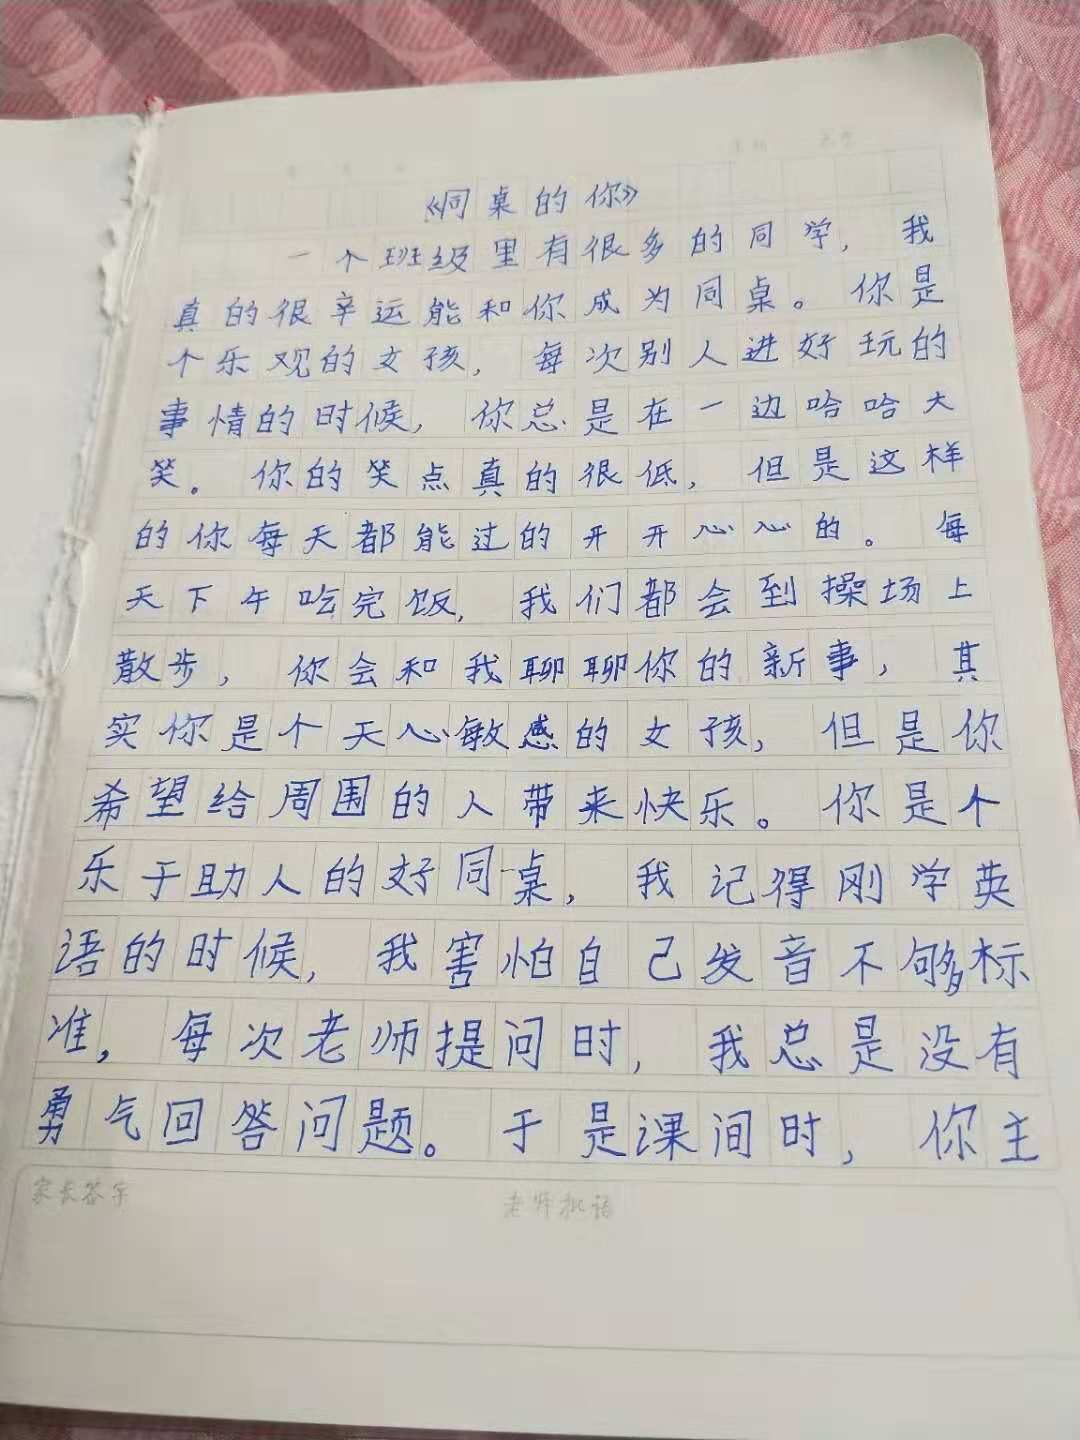 《同桌的你》
一个班级里有很多的同学，我
真的很辛运能和你成为同桌。你是
个乐观的女孩，每次别人进好玩的
事情的时候，你总是在一边哈哈大
笑。你的笑点真的很低，但是这样
的你每天都能过的开开心心的。每
天下午吃完饭，我们都会到操场上
散步，你会和我聊聊你的新事，其
实你是个天心敏感的女孩，但是你
希望给周围的人带来快乐。你是个
乐于助人的好同桌，我记得刚学英
语的时候，我害怕自己发音不够标
准，每次老师提问时，我总是没有
勇气回答问题。于是课间时，你主
家长签字
老师批语